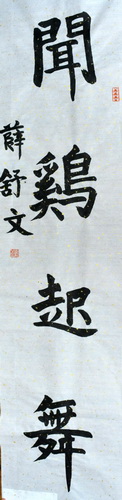 聞鷄起舞
薛舒文